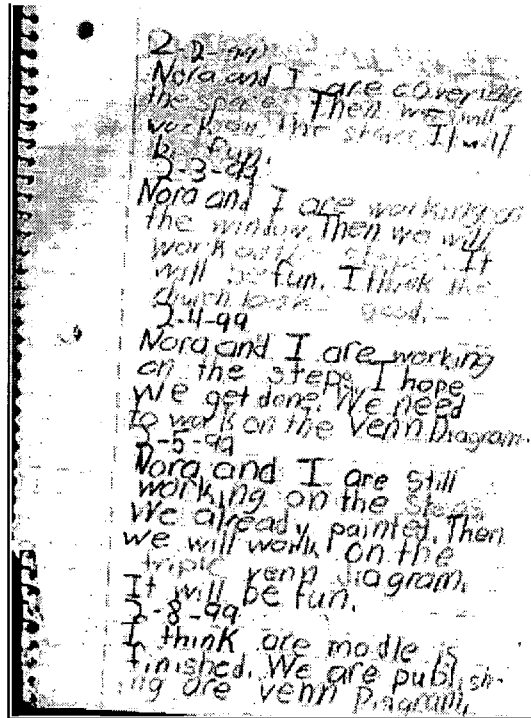 2-2-99
Nora and I are covering
the space. Then we will
work on the steps. It will
be fun.
2-3-99
Nora and I are working on
the window. Then we will
work on the steps. It
will be fun. I think the
church looks good.
2-4-99
Nora and I are working
on the steps. I hope
we get done. We need
to work on the Venn Diagram.
2-5-99
Nora and I are still
working on the steps
We already paintet. Then
we will work on the
triple venn diagram.
It will be fun.
2-8-99
I think are modle is
finished. We are publish-
ing are venn Diagram.